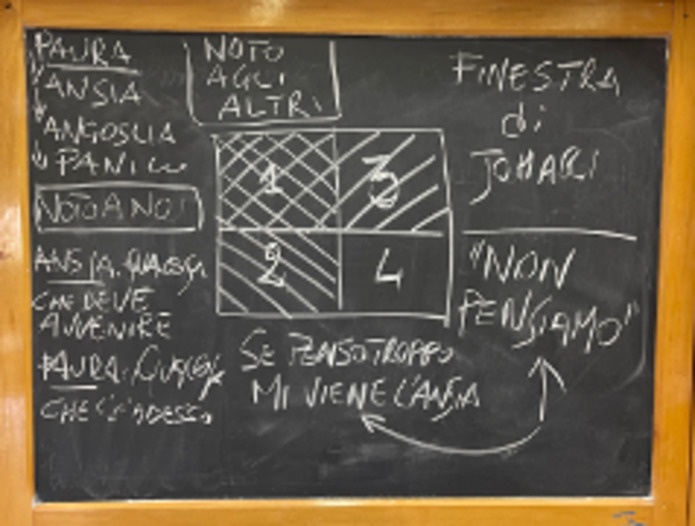 PAURA
ANSIA
ANGOSCIA
PANICO
NOTO A NOI
ANSIA: QUALCOSA
CHE DEVE
AVVENIRE
PAURA: QUALCOSA
CHE C'È ADESSO
NOTO
AGLI
ALTRI
1 3
2 4
SE PENSO TROPPO
MI VIENE L'ANSIA
FINESTRA
di
JOHARI
"NON
PENSIAMO"